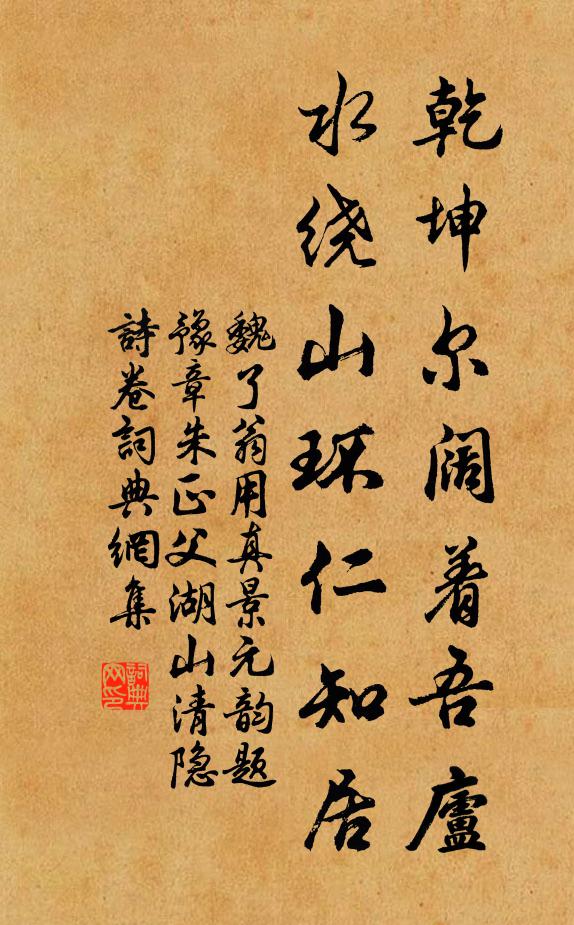 乾坤尔阔着吾廬
水绕山环仁知居
魏了翁用真景元韵题
豫章朱正父湖山清隐
詩卷詞典網集
詞典网印